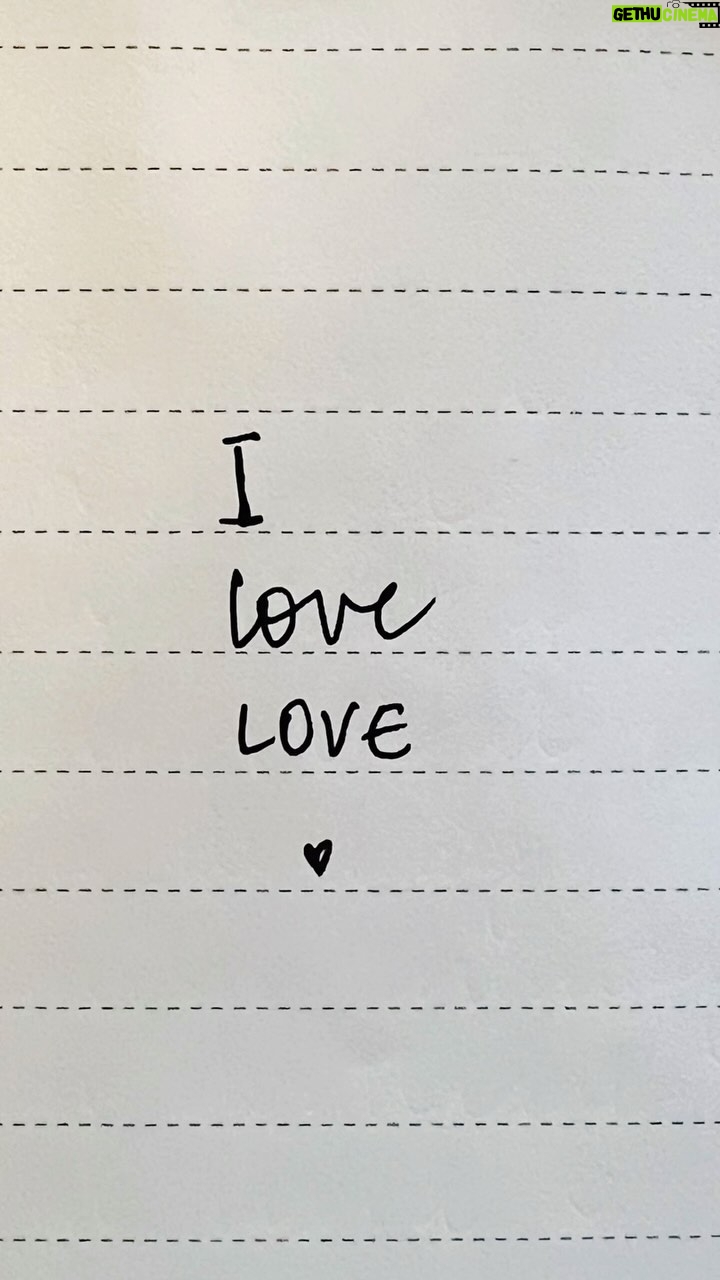 GETHU CINEMA
I
love
LOVE
♥